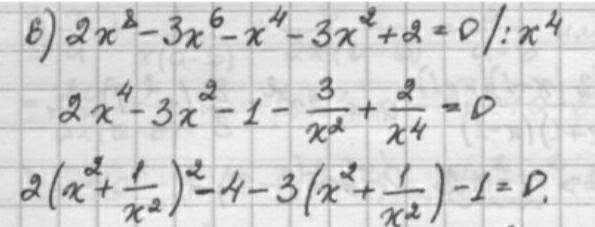 в) 2x⁸ - 3x⁶ - x⁴ - 3x² + 2 = 0 /: x⁴
2x⁴ - 3x² - 1 - 3/x² + 2/x⁴ = 0
2(x² + 1/x²)² - 4 - 3(x² + 1/x²) - 1 = 0.